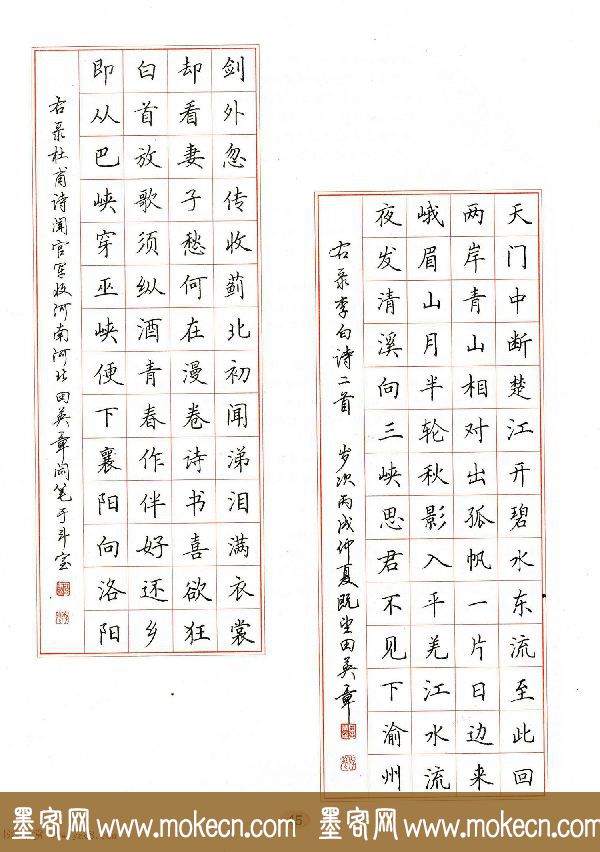 天门中断楚江开碧水东流至此回
两岸青山相对出孤帆一片日边来
峨眉山月半轮秋影入平羌江水流
夜发清溪向三峡思君不见下渝州
右录李白诗二首 岁次丙戌仲夏既望田英章
剑外忽传收蓟北初闻涕泪满衣裳
却看妻子愁何在漫卷诗书喜欲狂
白首放歌须纵酒青春作伴好还乡
即从巴峡穿巫峡便下襄阳向洛阳
右录杜甫诗闻官军收河南河北田英章
墨客网 www.mokecn.com 墨客网 www.mokecn.com